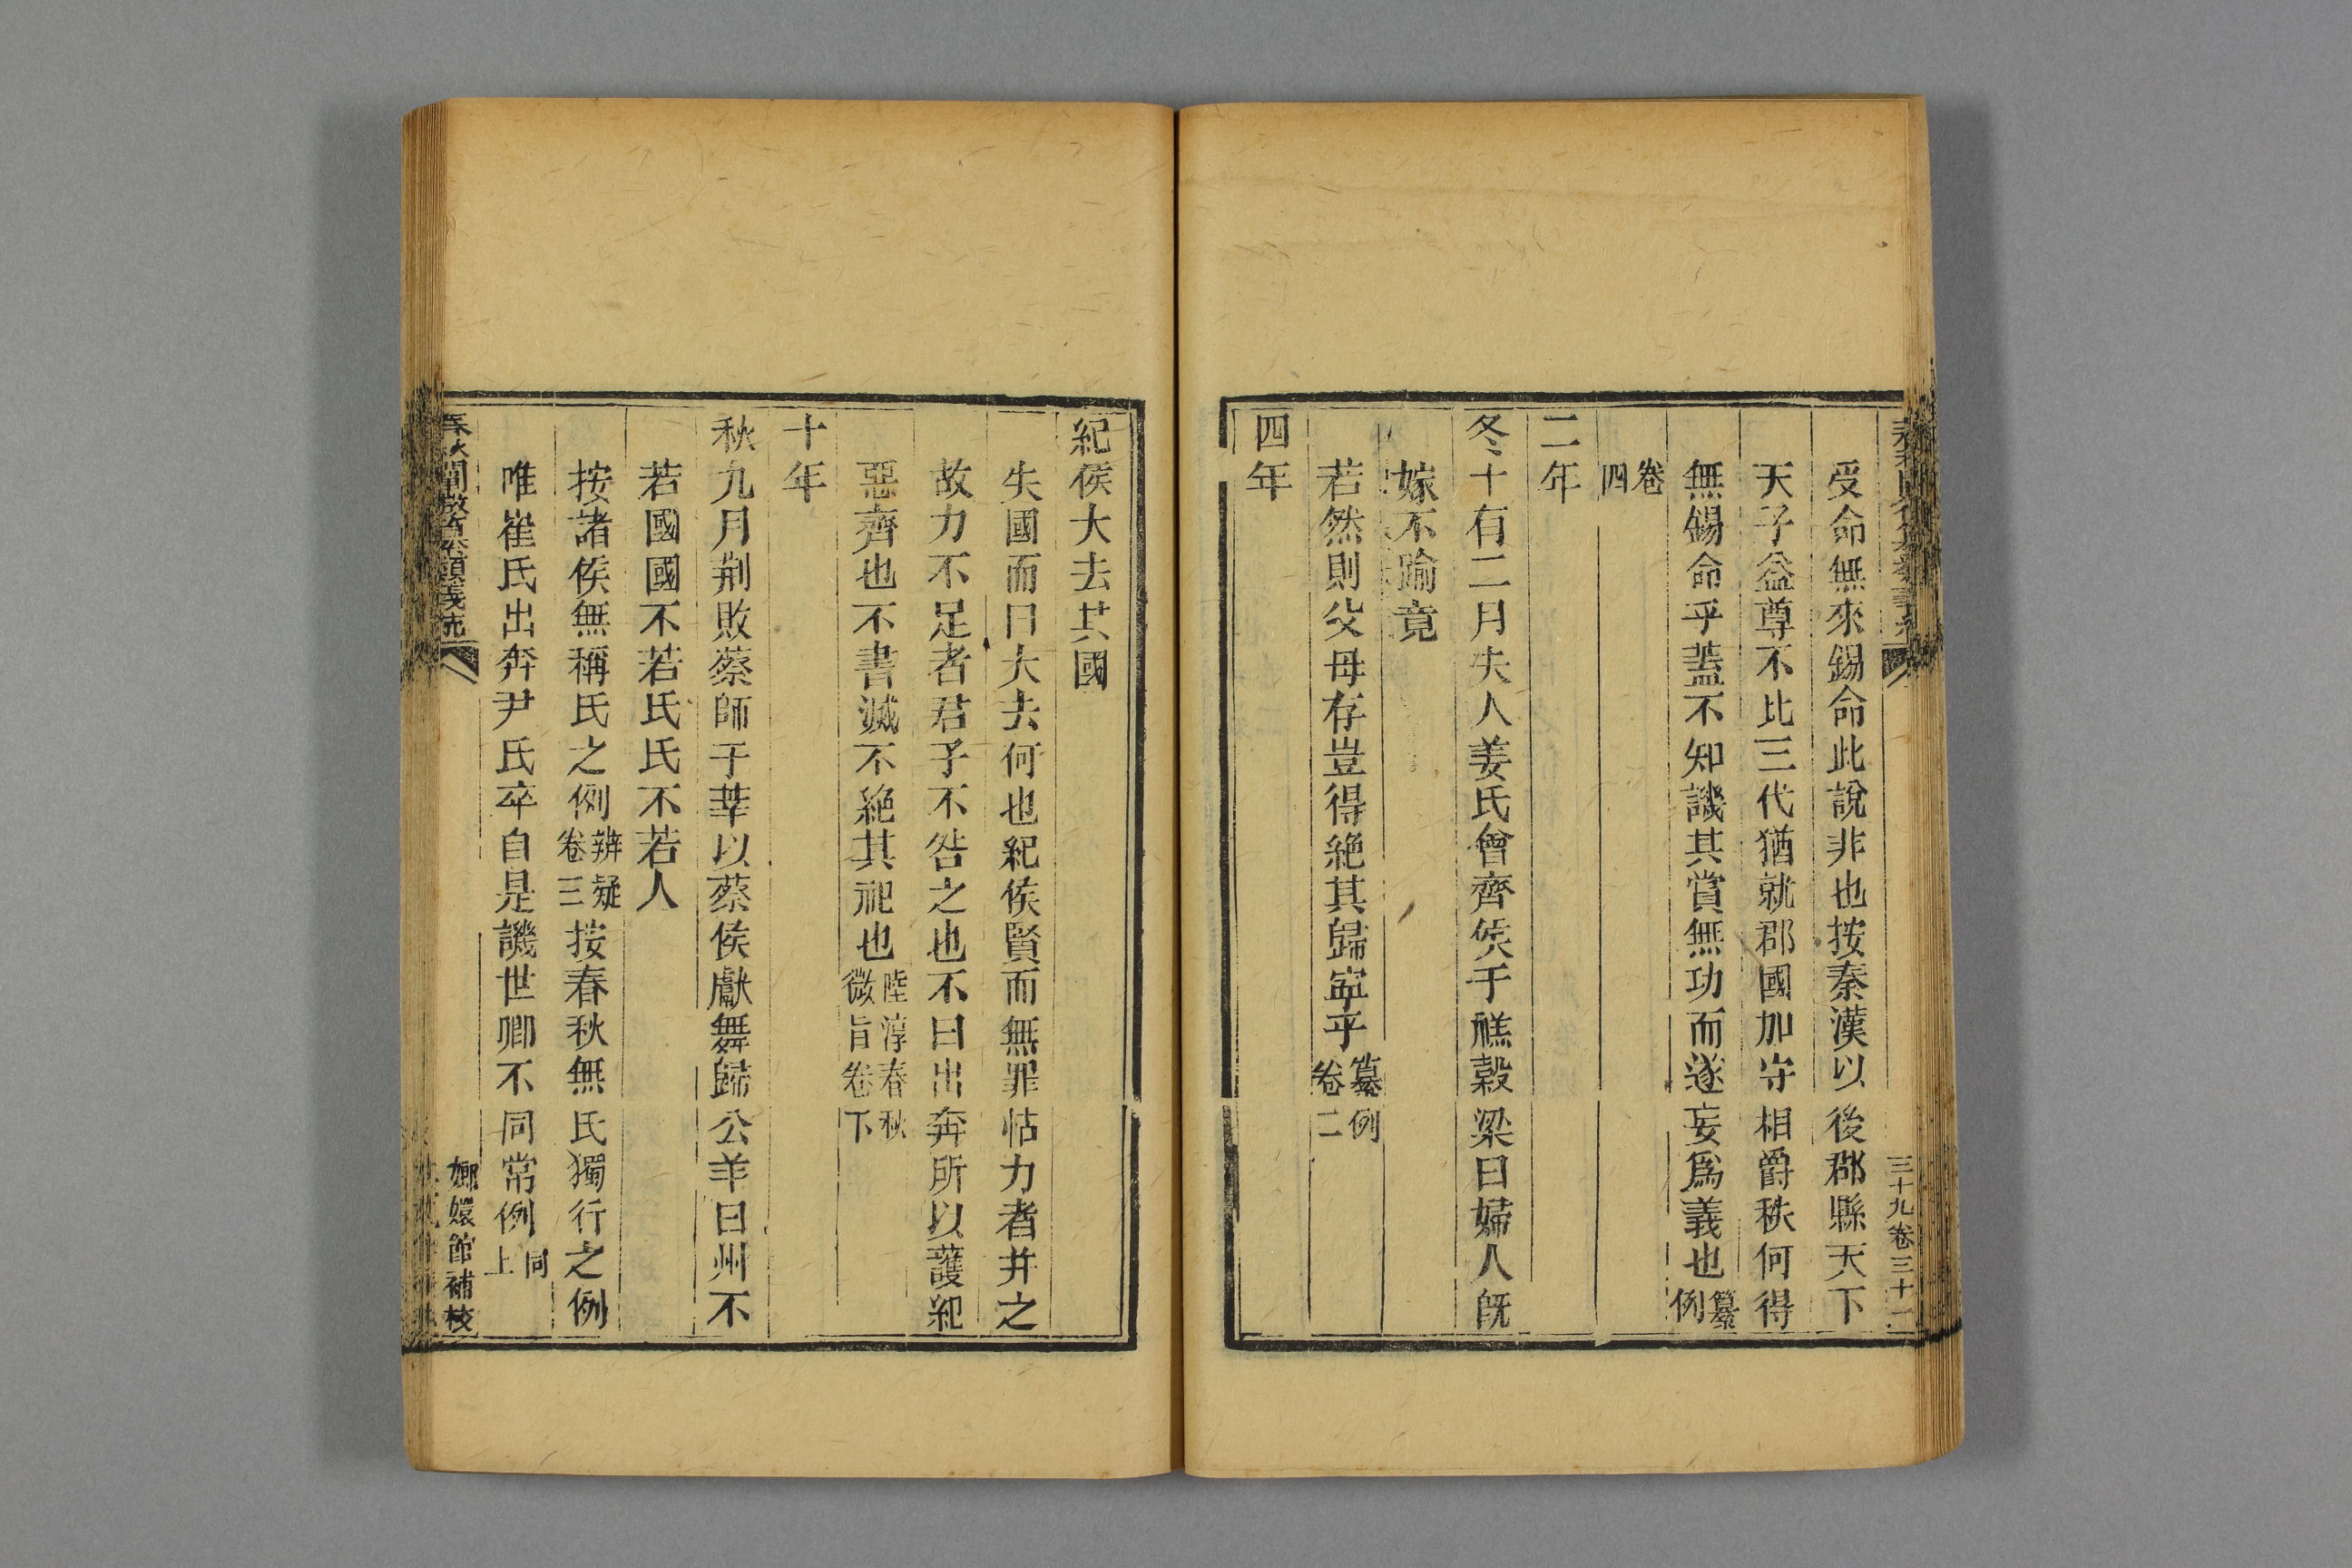 三十九卷三十一
受命無來錫命此說非也按秦漢以後郡縣天下
天子益尊不比三代猶就郡國加守相爵秩何得
無錫命乎蓋不知譏其賞無功而遂妄爲義也纂例
卷四
二年
冬十有二月夫人姜氏會齊矦于禚榖梁曰婦人旣
嫁不踰竟
若然則父母存豈得絶其歸寧乎纂例卷二
四年
紀侯大去其國
失國而曰大去何也紀侯賢而無罪怙力者并之
故力不足者君子不咎之也不曰出奔所以護紀
惡齊也不書滅不絶其祀也陸淳春秋微旨卷下
十年
秋九月荆敗蔡師于莘以蔡侯獻舞歸公羊曰州不
若國國不若氏氏不若人
按諸侯無稱氏之例辨疑卷三按春秋無氏獨行之例
唯崔氏出奔尹氏卒自是譏世卿不同常例同上
嫏嬛館補校